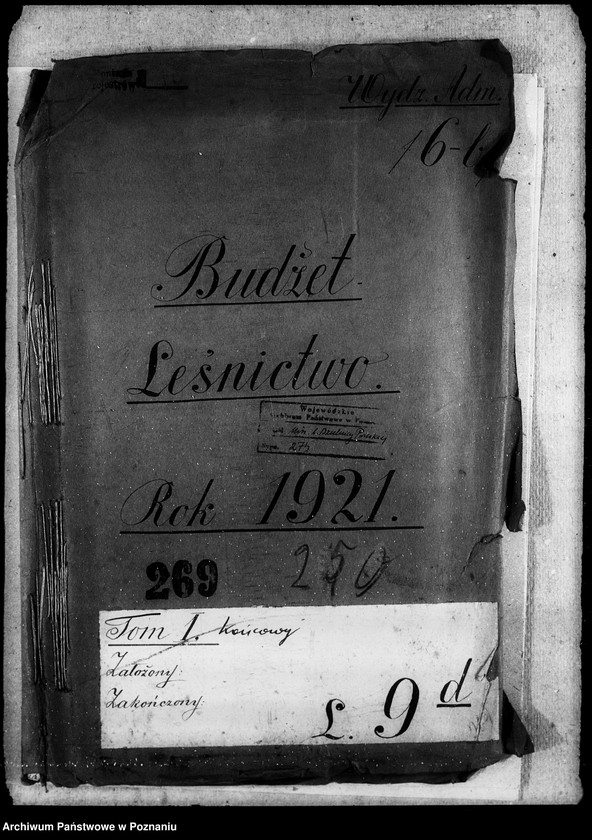 Wydz. Adm.
16-1
Budżet
Leśnictwo.
Wojewódzkie
Archiwum Państwowe w Pozn.
Min. b. Dzielnicy Pruskiej
Sygn. 275
Rok 1921.
269 250
Tom I. końcowy
Założony:
Zakończony:
L. 9 d
Archiwum Państwowe w Poznaniu